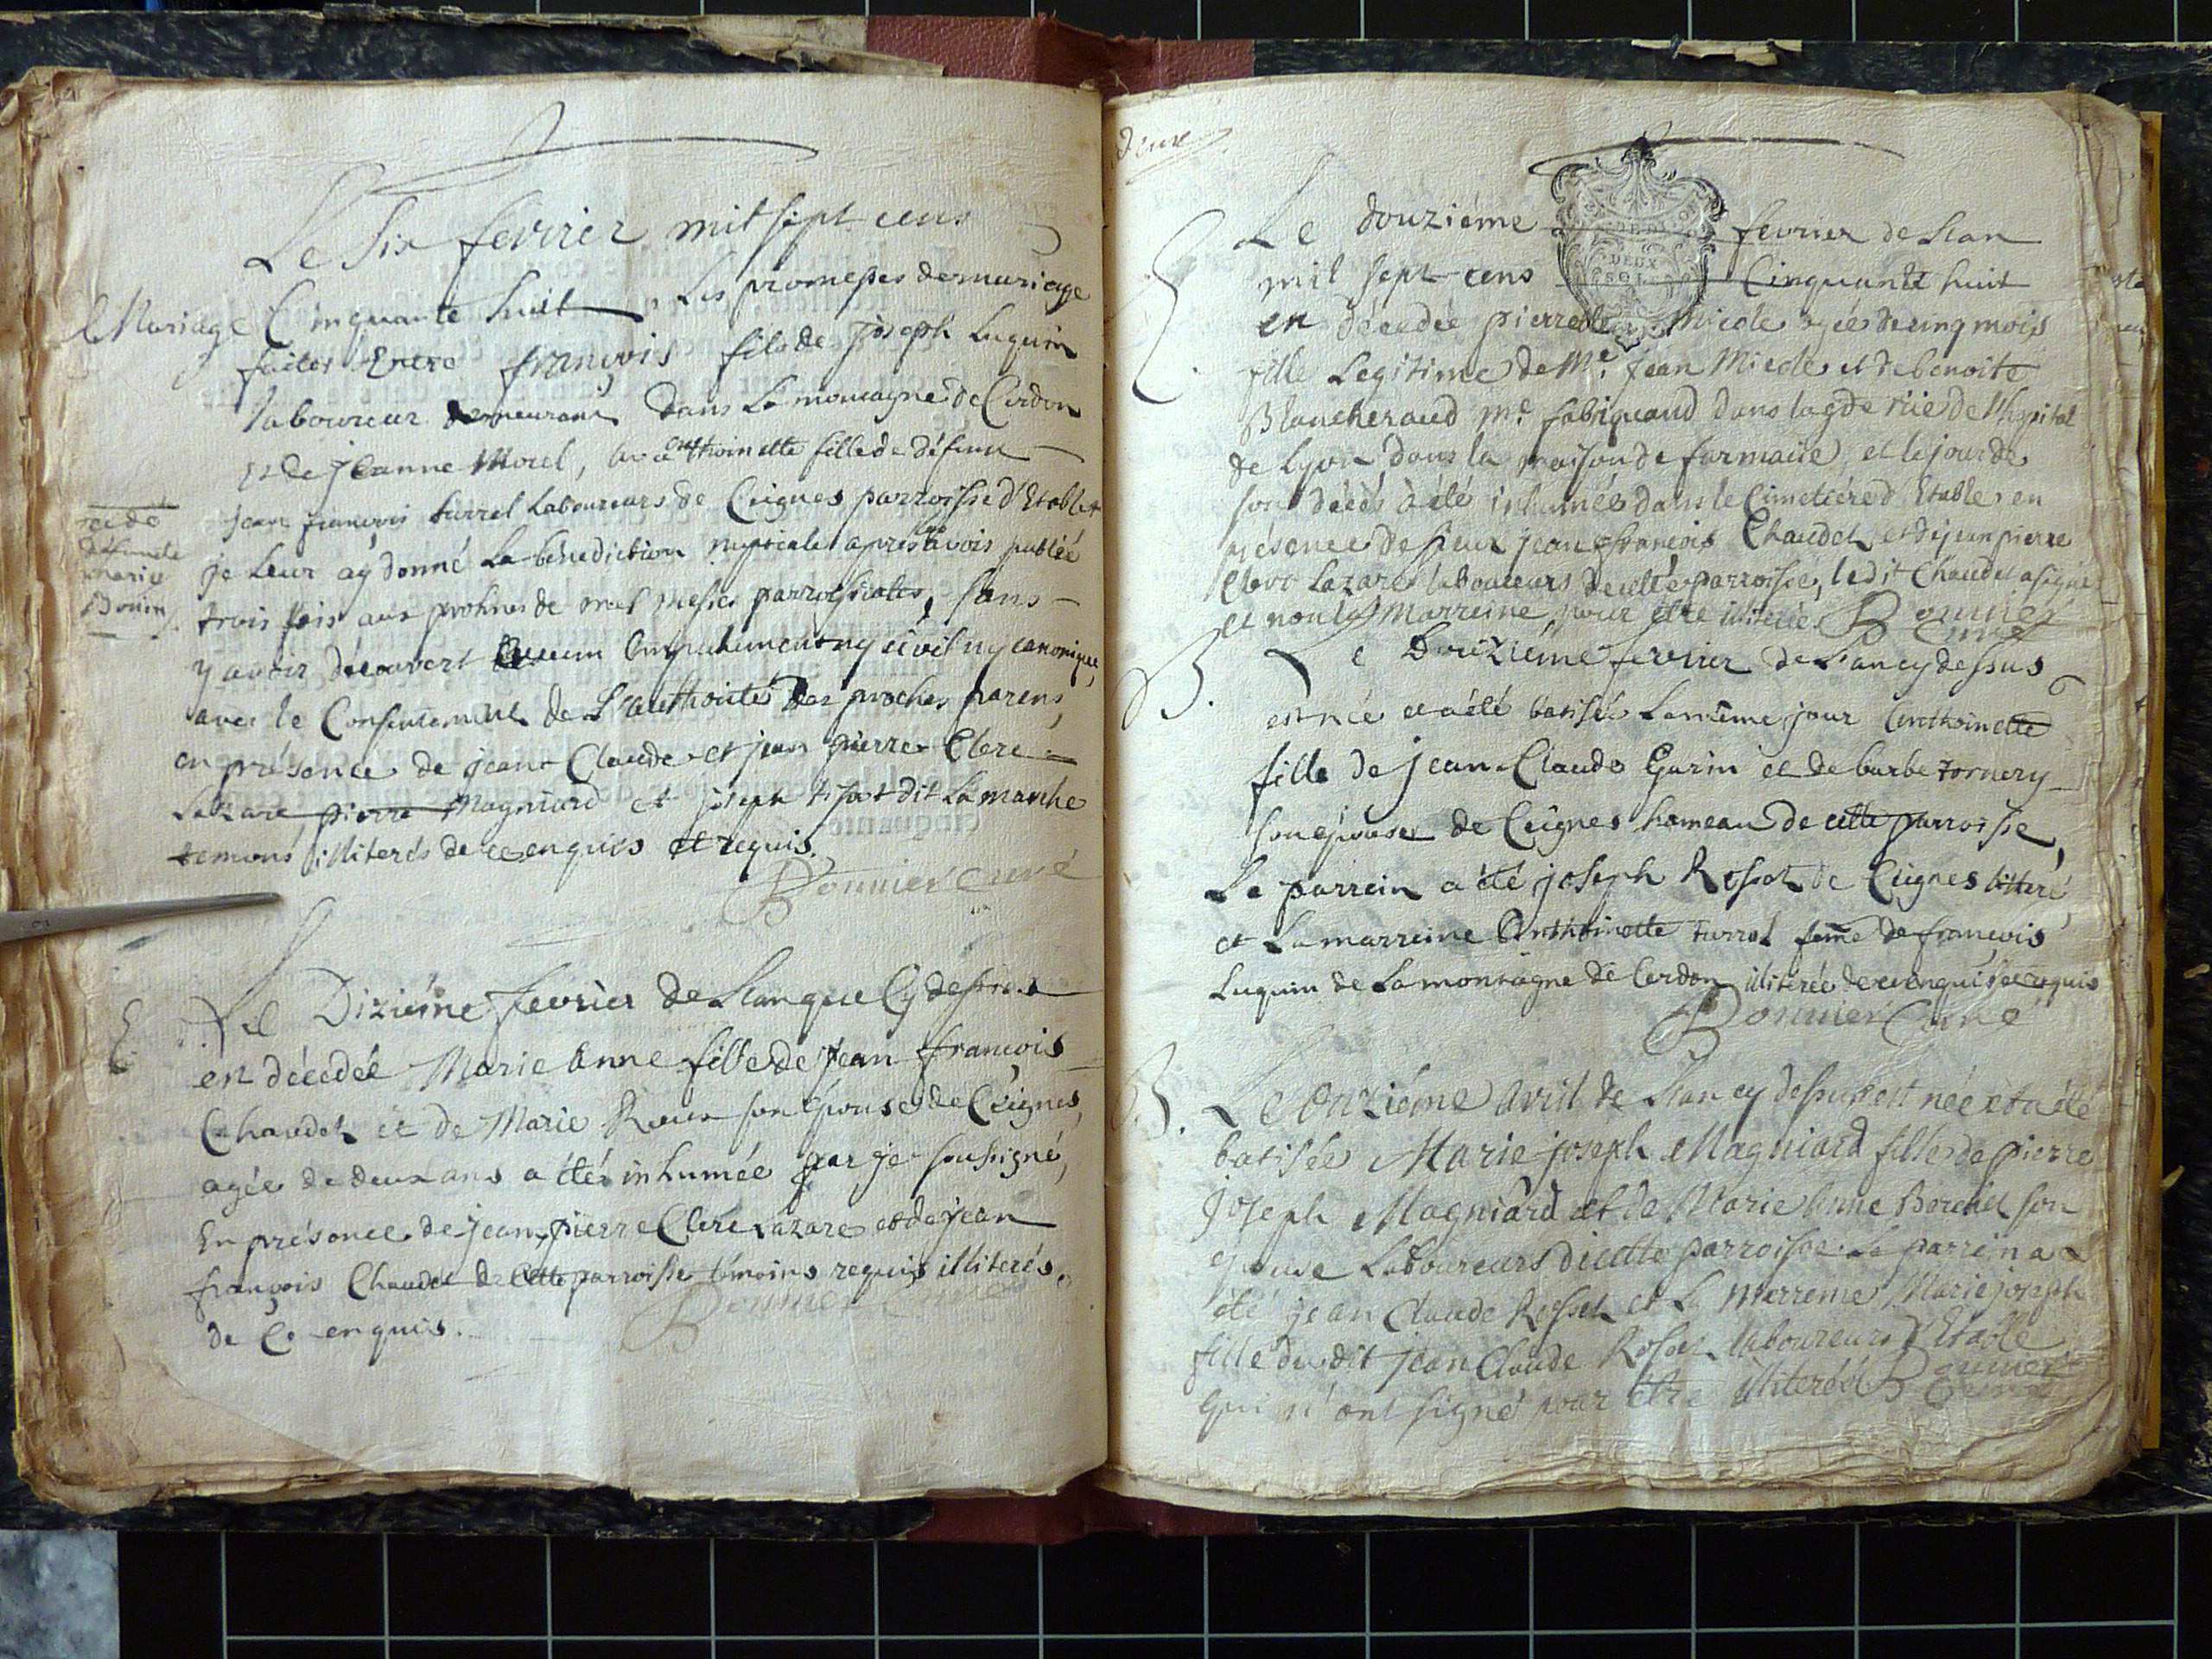 Le Six fevrier mil sept cens
Mariage Cinquante huit, Les promesses de mariage
faites Entre françois fils de joseph Luquin
laboureur demeurant dans La montagne de Cerdon
et de jeanne Morel, avec anthoinette fille de défunt
jean françois turrel Laboureurs de Ceignes parroisse d'Etable
et de
défunte
marie
Bonin
je Leur ay donné La bénediction nuptiale après avois publié
trois fois aux prohnes de mes messes parroissiales, sans
y avoir découvert aucun Empechement ny civil ny canonique,
avec le Consentement de L'authorité des proches parens,
en présence de jean Claude et jean pierre Clerc
Lazare, pierre Magniard et joseph tissot dit La marche
temoins illiterés de ce enquis et requis.
Bonnier curé
E Le Dizième fevrier de L'an que Cy dessus
est décédée Marie Anne fille de jean françois
Chaudet et de Marie Roux son épouse de Ceignes,
agée de deux ans a été inhumée par je soussigné,
En présence de jean pierre Clerc Lazare et de jean
françois Chaudet de Cette parroisse témoins requis illiterés
de Ce enquis.
Bonnier Curé
deux
DEUX
SOLS
E. Le douzième fevrier de L'an
mil sept cens Cinquante huit
est décédée pierrette Micole agée de cinq mois
fille Legitime de Me. jean Micole et de benoite
Blancheraud Me. fabriquand dans la gde rüe de l'hopital
de Lyon dans la maison de furmaire et le jour de
son décés à été inhumée dans le Cimetiére d'Etable en
présence de sieur jean françois Chaudet et de jean pierre
Clerc Lazare laboureurs de cette parroisse, ledit Chaudet a signé
et non la Marreine pour être illiterée Bonnier
Curé
B. Le Douzième fevrier de L'an cy dessus
est née et a été batisée Le même jour Anthoinette
fille de jean Claude Gurin et de barbe tornery
son épouse de Ceignes hameau de cette parroisse,
Le parrein a été joseph Rosset de Ceignes illiteré
et La marreine Anthoinette turrel feme de françois
Luquin de La montagne de Cerdon illiterée de ce enquis et requis
Bonnier Curé
B. Le Onzième Avril de L'an cy dessus est née et a été
batisée Marie joseph Magniard fille de pierre
joseph Magniard et de Marie Anne Berchet son
epouse Laboureurs de cette parroisse. Le parrein a
été jean Claude Rosset et La marreine Marie joseph
fille du dit jean Claude Rosset laboureurs d'Etable
qui n'ont signé pour être illiterés Bonnier
Curé